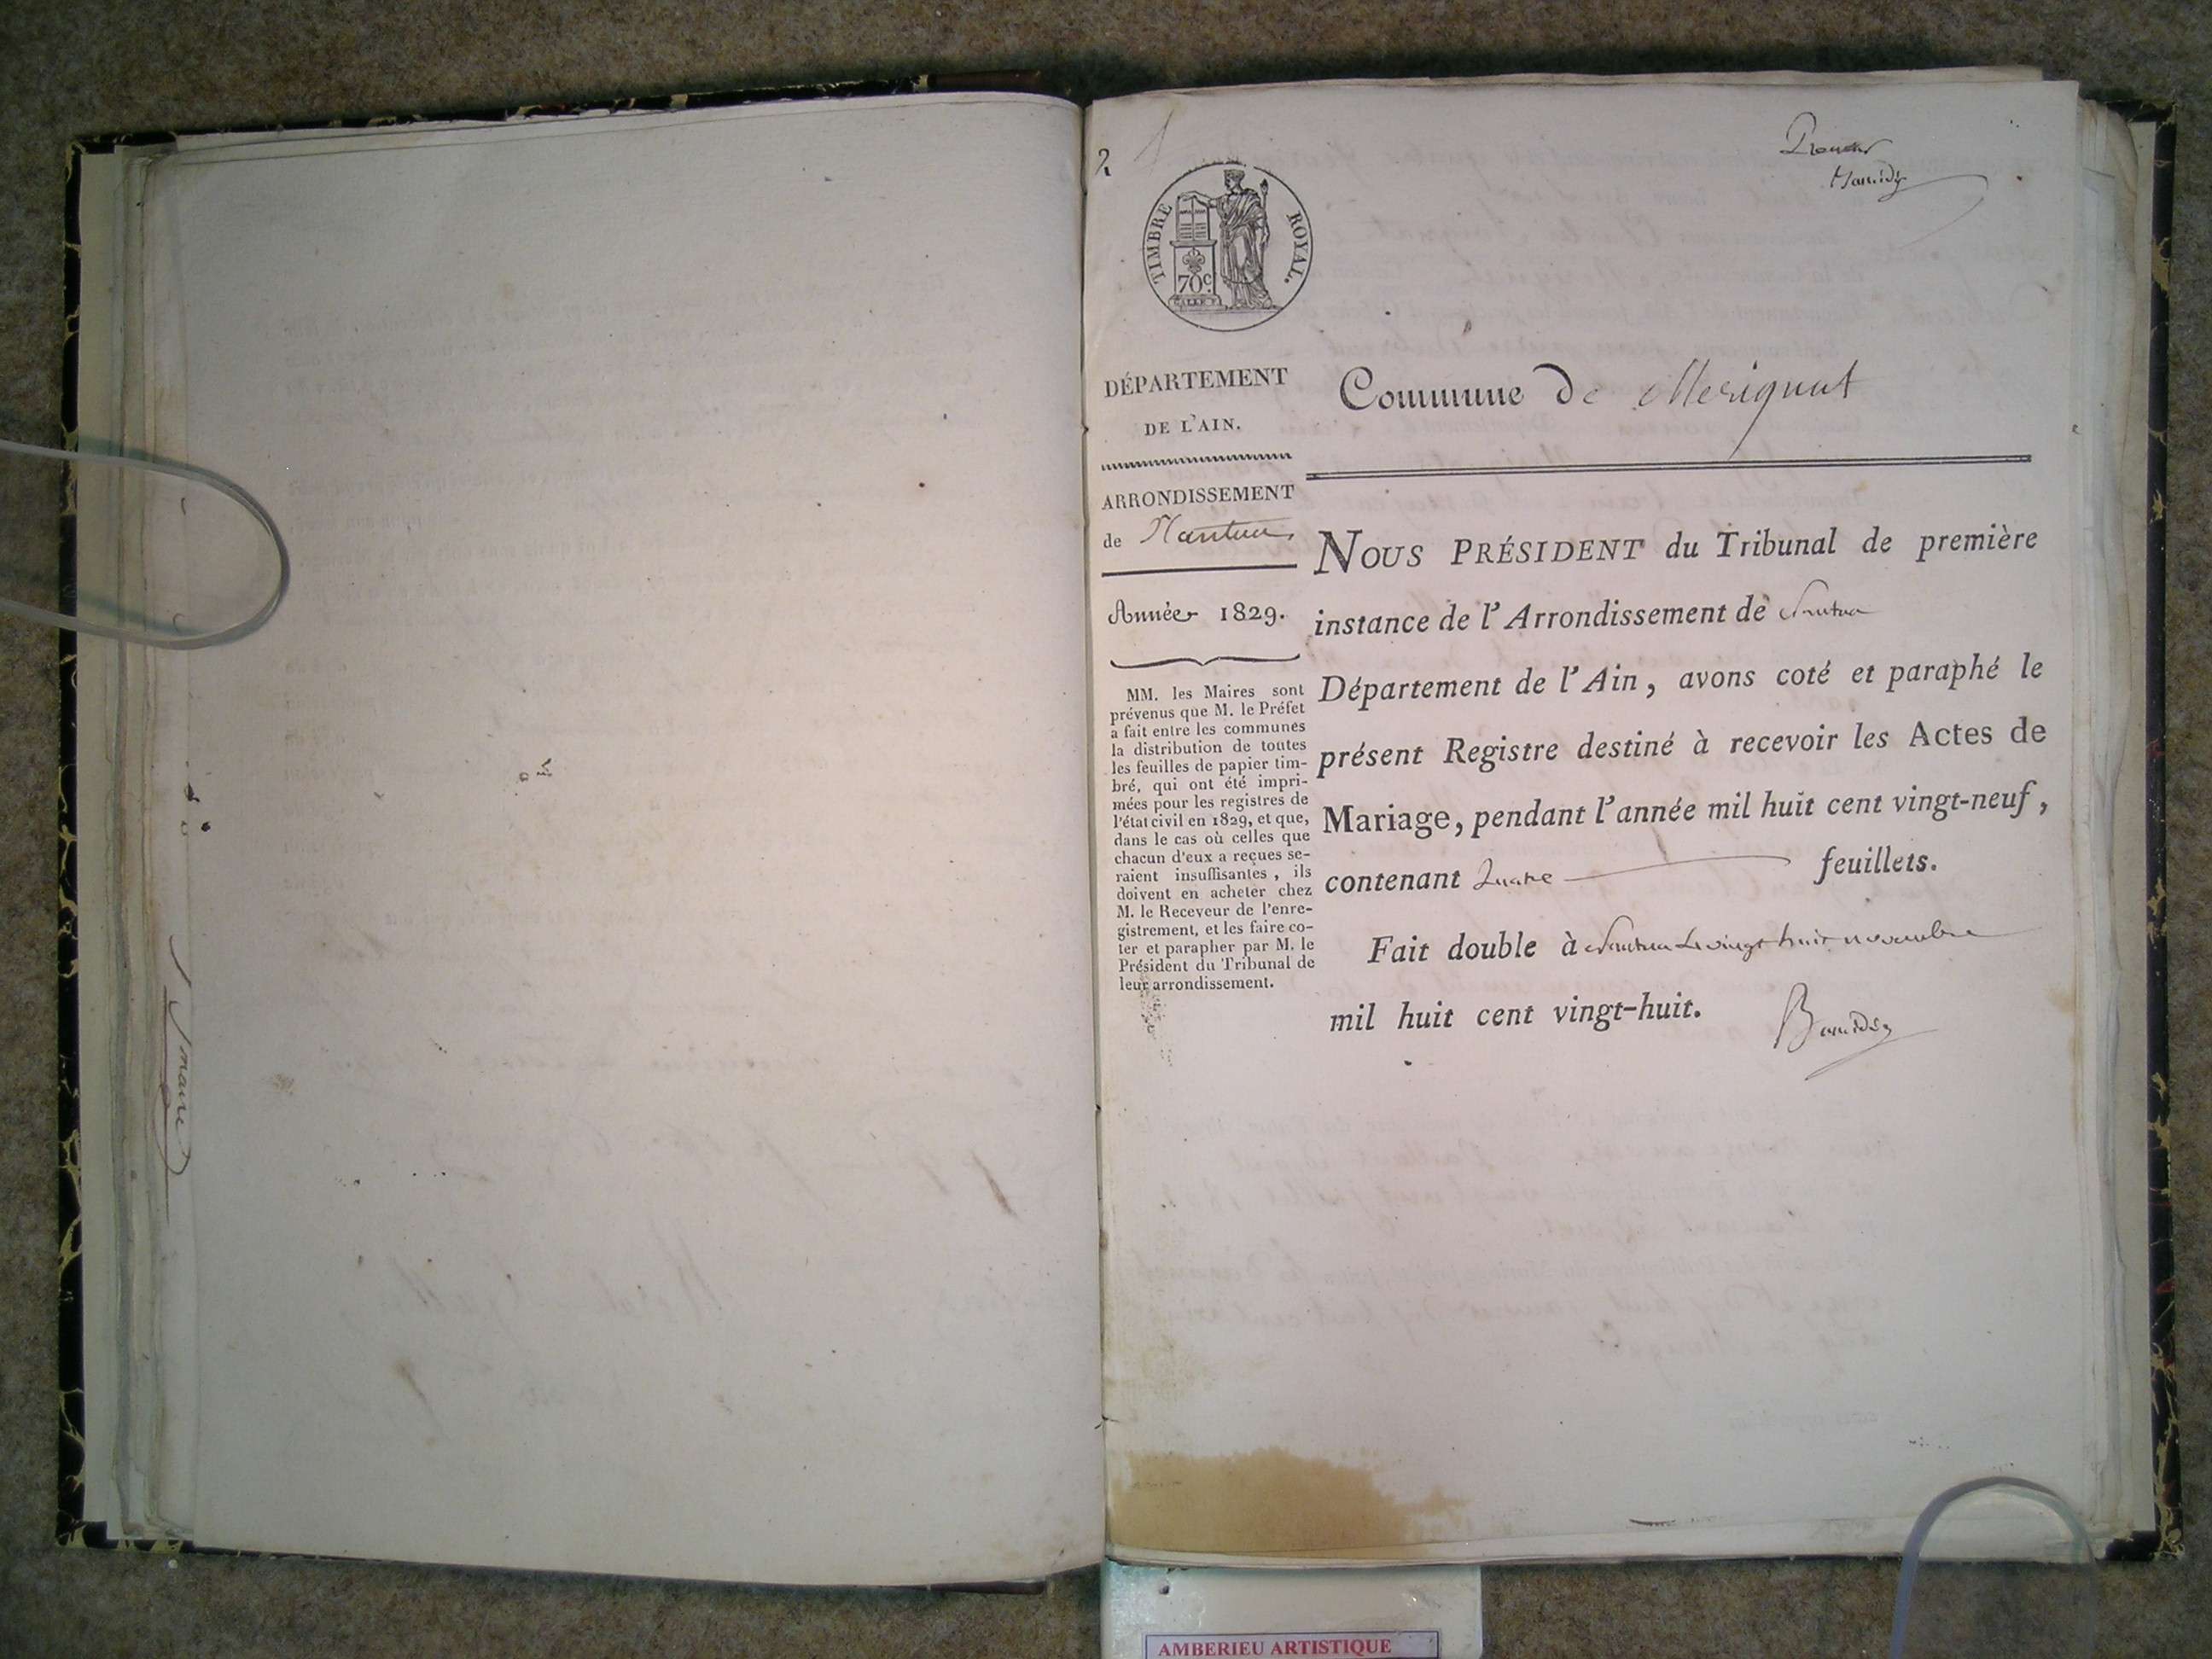 maire
2
TIMBRE ROYAL.
70c.
Premier
DÉPARTEMENT
DE L'AIN.
ARRONDISSEMENT
de Nantua
Année 1829.
MM. les Maires sont
prévenus que M. le Préfet
a fait entre les communes
la distribution de toutes
les feuilles de papier tim-
bré, qui ont été impri-
mées pour les registres de
l'état civil en 1829, et que,
dans le cas où celles que
chacun d'eux a reçues se-
raient insuffisantes, ils
doivent en acheter chez
M. le Receveur de l'enre-
gistrement, et les faire co-
ter et parapher par M. le
Président du Tribunal de
leur arrondissement.
Commune de Merignat
NOUS PRÉSIDENT du Tribunal de première
instance de l'Arrondissement de Nantua
Département de l'Ain, avons coté et paraphé le
présent Registre destiné à recevoir les Actes de
Mariage, pendant l'année mil huit cent vingt-neuf,
contenant quatre feuillets.
Fait double à Nantua le vingt huit novembre
mil huit cent vingt-huit.
AMBERIEU ARTISTIQUE